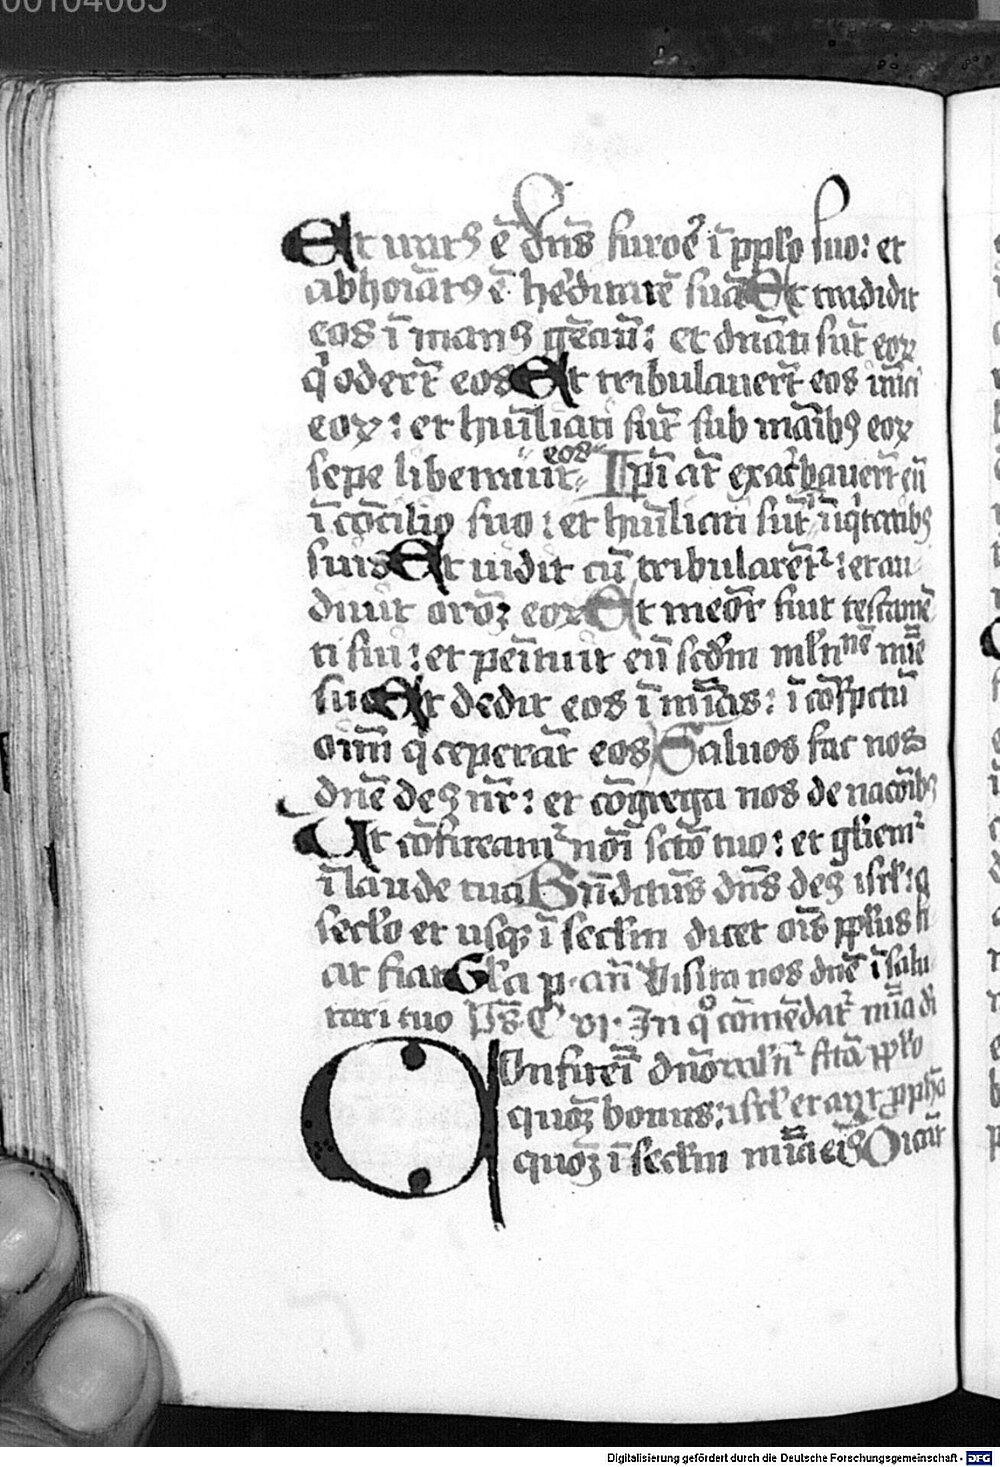 00104065
Et irat9 ē dn̄s furoē ī pplo suo: et
abhoiāt9 ē hēditatē suā Et tradidit
eos ī man9 gēciū: et dnāti sūt eoꝝ
q̇ oderūt eos Et tribulauerūt eos inīci
eoꝝ: et hūiliati sūt sub māib9 eoꝝ
sepe liberauit eos Ip̄i at̄ exac̄bauerūt eū
ī cōcilio suo: et hūiliati sūt ī iniq̇tatib9
suis Et uidit cū tribularēt᷑: et au
diuit oroꝫ eoꝝ Et meōr fuit testamē
ti sui: et penītuit eū scd̄m ml̄titudinē mīe
sue Et dedit eos ī mīas: ī cōspectu
oīm q̇ ceperāt eos Saluos fac nos
dnē de9 nr̄: et cōgrega nos de nacōib9
Ut cōfiteam᷑ noī scō tuo: et gl̄iem᷑
ī laude tua Bn̄dictus dn̄s de9 isrl̄: a
seclo et usqꝫ ī seclm dicet oīs pplus fi
at fiat Gl̄a p. an̄ Visita nos dnē ī salu
tari tuo Ps̄ C vi. In q° cōmēdat᷑ mīa di
Onfitemī dno
quoꝫ bonus: isrl̄
quoꝫ ī seclm mīa ei9 Dicāt
Digitalisierung gefördert durch die Deutsche Forschungsgemeinschaft - DFG